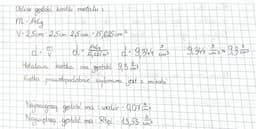 Oblicz gęstość kostki metalu:
m = 146g
V = 2,5cm · 2,5cm · 2,5cm = 15,625cm³
d = m/V d = 146g/15,625cm³ d = 9,344 g/cm³ 9,344 g/cm³ ≈ 9,3 g/cm³
Metalowa kostka ma gęstość 9,3 g/cm³
Kostka prawdopodobnie wykonana jest z
Najmniejszą gęstość ma: wodór - 0,09
Największą gęstość ma: Rtęć - 13,55